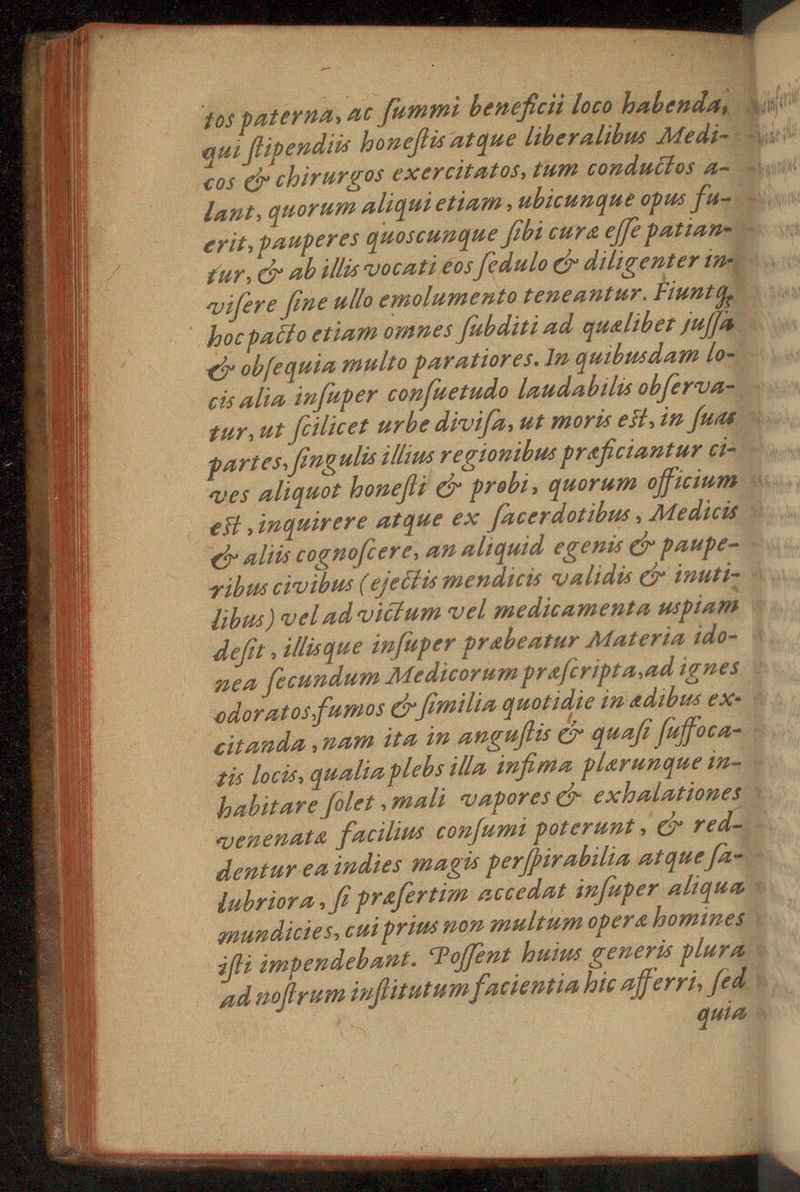 tos paterna, ac ſummi beneficii loco habenda,
qui ſtipendiis honeſtis atque liberalibus Medi-
cos & chirurgos exercitatos, tum conductos a-
lant, quorum aliqui etiam, ubicunque opus fu-
erit, pauperes quoscunque ſibi curæ eſſe patian-
tur, & ab illis vocati eos ſedulo & diligenter in-
viſere ſine ullo emolumento teneantur. Fiuntq;
hoc pacto etiam omnes ſubditi ad quælibet juſſa
& obſequia multo paratiores. In quibusdam lo-
cis alia inſuper conſuetudo laudabilis obſerva-
tur, ut ſcilicet urbe diviſa, ut moris eſt, in ſuas
partes, ſingulis illius regionibus præficiantur ci-
ves aliquot honeſti & probi, quorum officium
eſt, inquirere atque ex ſacerdotibus, Medicis
& aliis cognoſcere, an aliquid egenis & paupe-
ribus civibus (ejectis mendicis validis & inuti-
libus) vel ad victum vel medicamenta uspiam
deſit, illisque inſuper præbeatur Materia ido-
nea ſecundum Medicorum præſcripta, ad ignes
odoratos, fumos & ſimilia quotidie in ædibus ex-
citanda, nam ita in anguſtis & quaſi ſuffoca-
tis locis, qualia plebs illa infima plærunque in-
habitare ſolet, mali vapores & exhalationes
venenatæ facilius conſumi poterunt, & red-
dentur ea indies magis perſpirabilia atque ſa-
lubriora, ſi præſertim accedat inſuper aliqua
mundicies, cui prius non multum operæ homines
iſti impendebant. Poſſent huius generis plura
ad noſtrum inſtitutum facientia hic afferri, ſed
quia